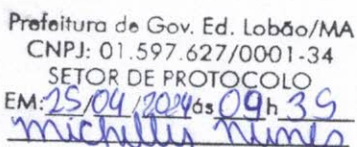 Prefeitura de Gov. Ed. Lobão/MA
CNPJ: 01.597.627/0001-34
SETOR DE PROTOCOLO
EM: 25/04/2024 às 09h 39
Michelly Nunes